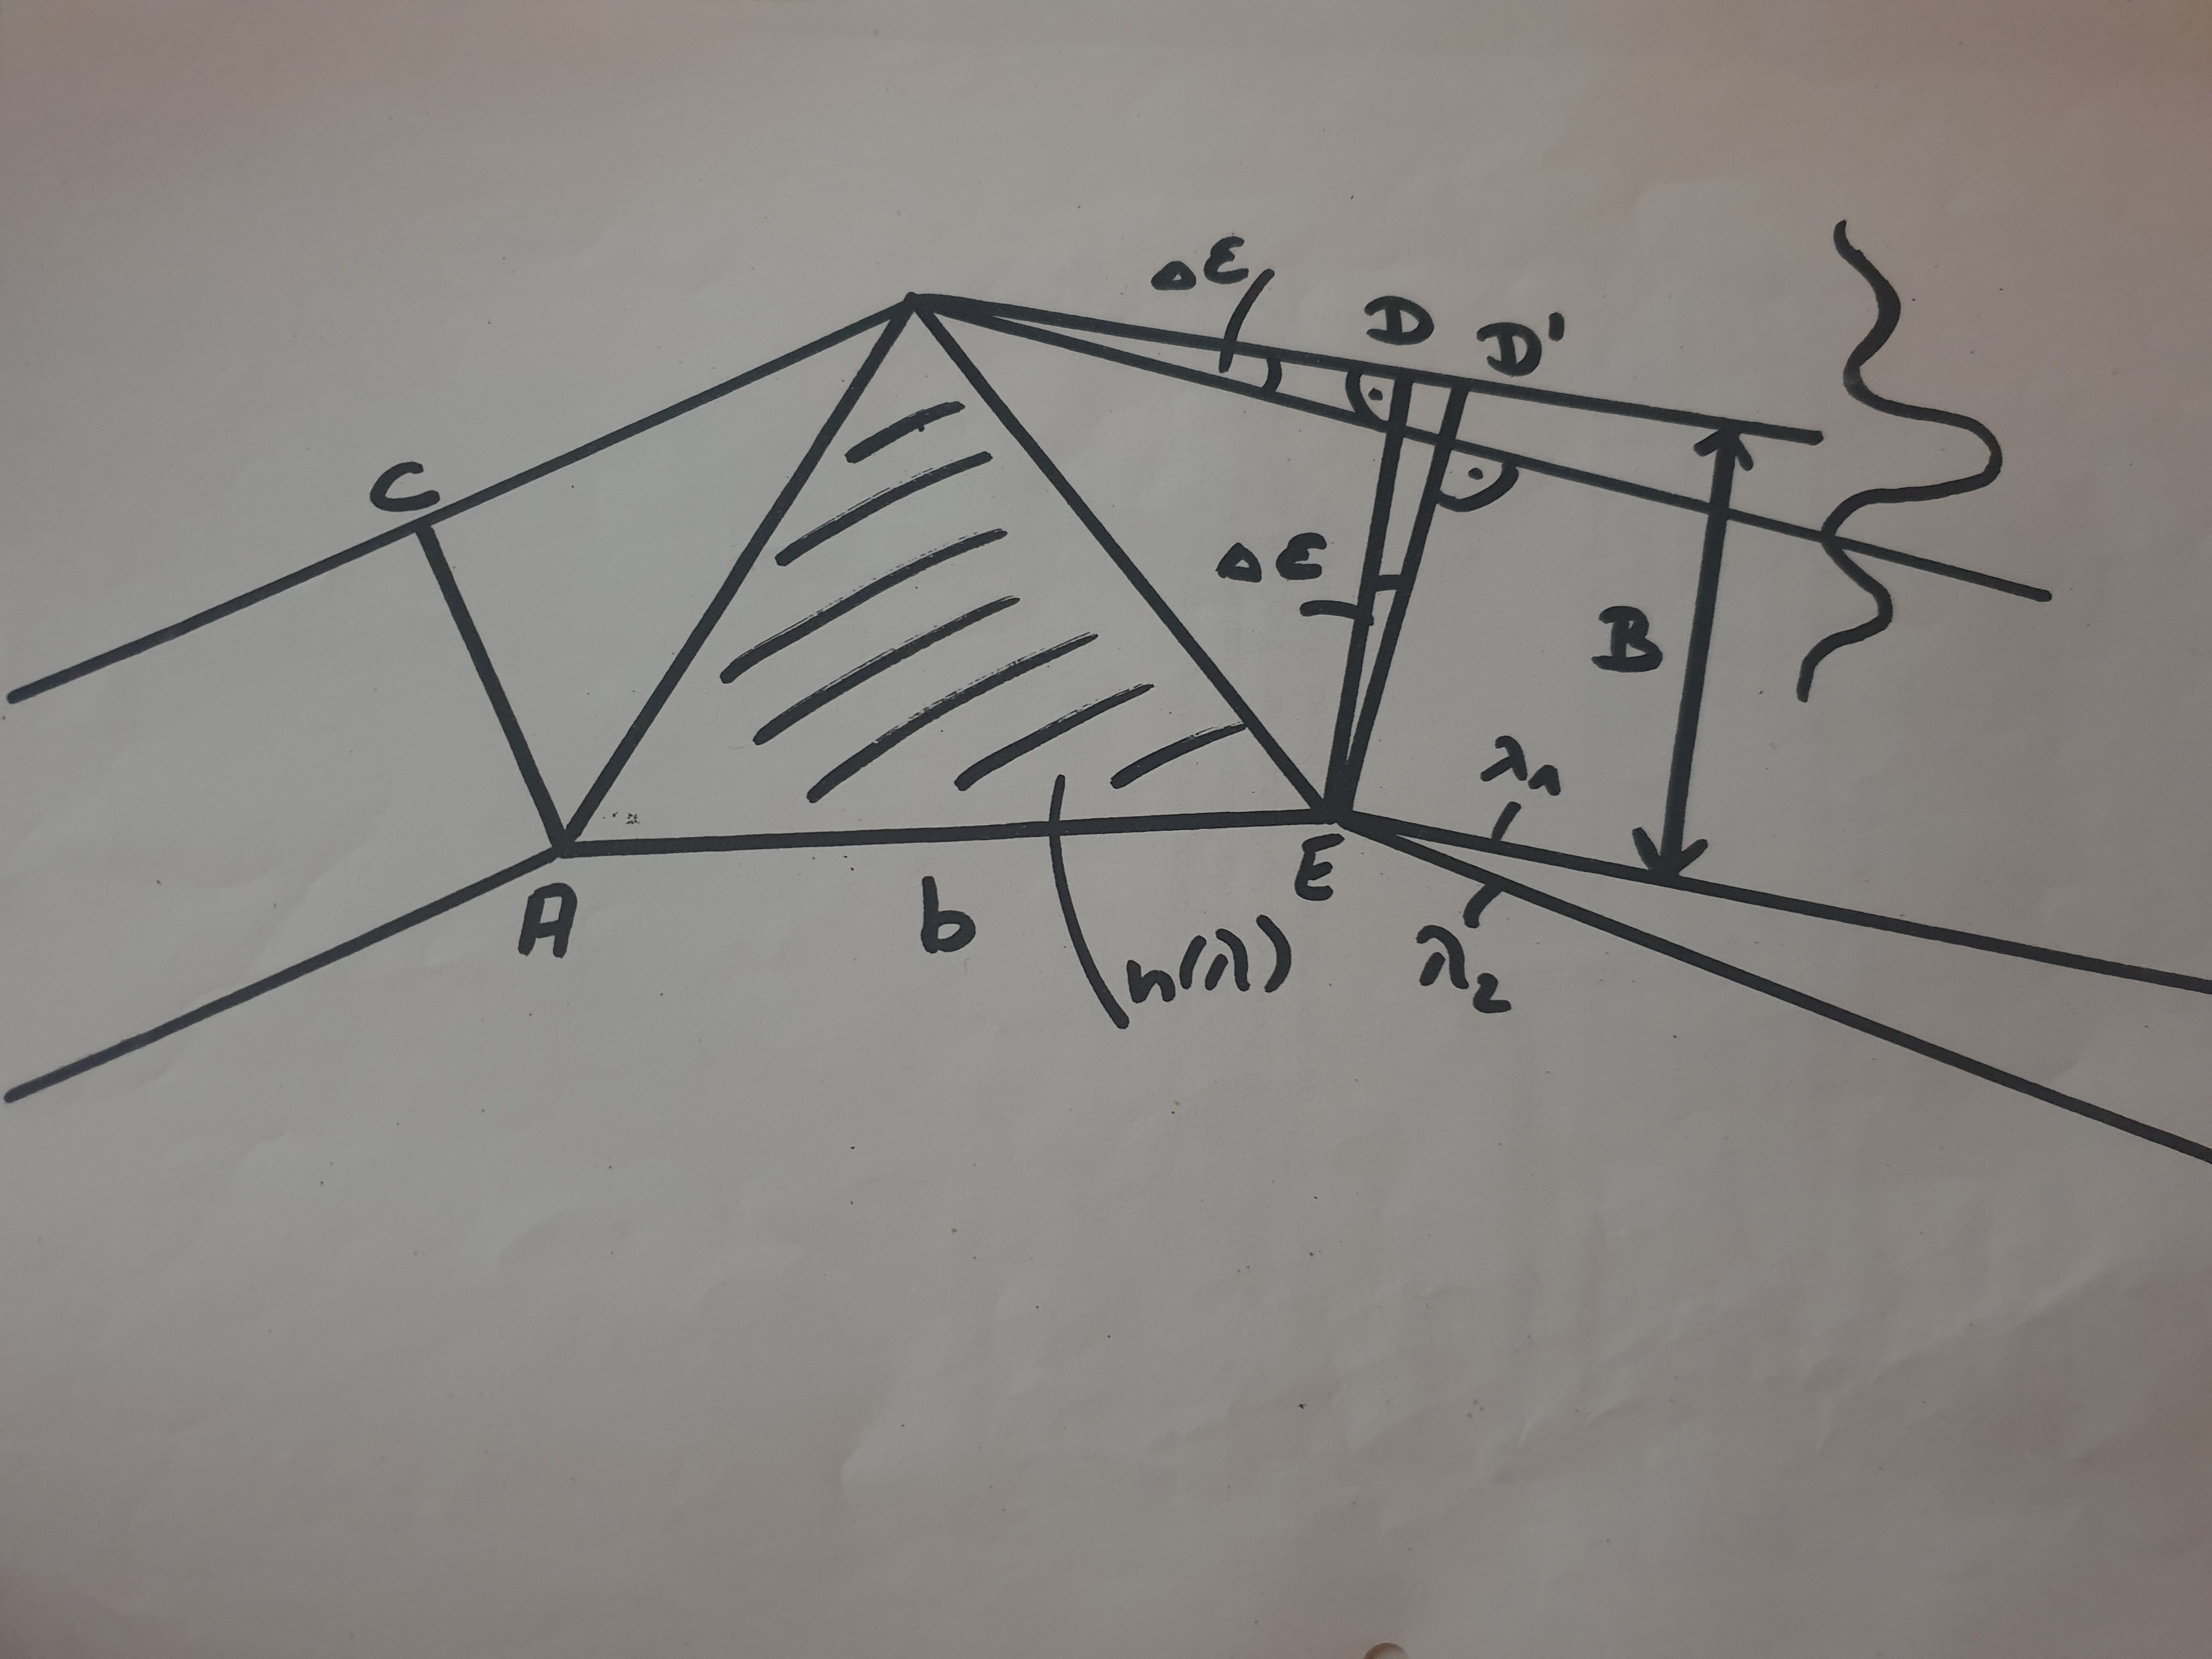 Δε
D
D'
C
Δε
B
λ1
A
b
E
n(λ)
λ2